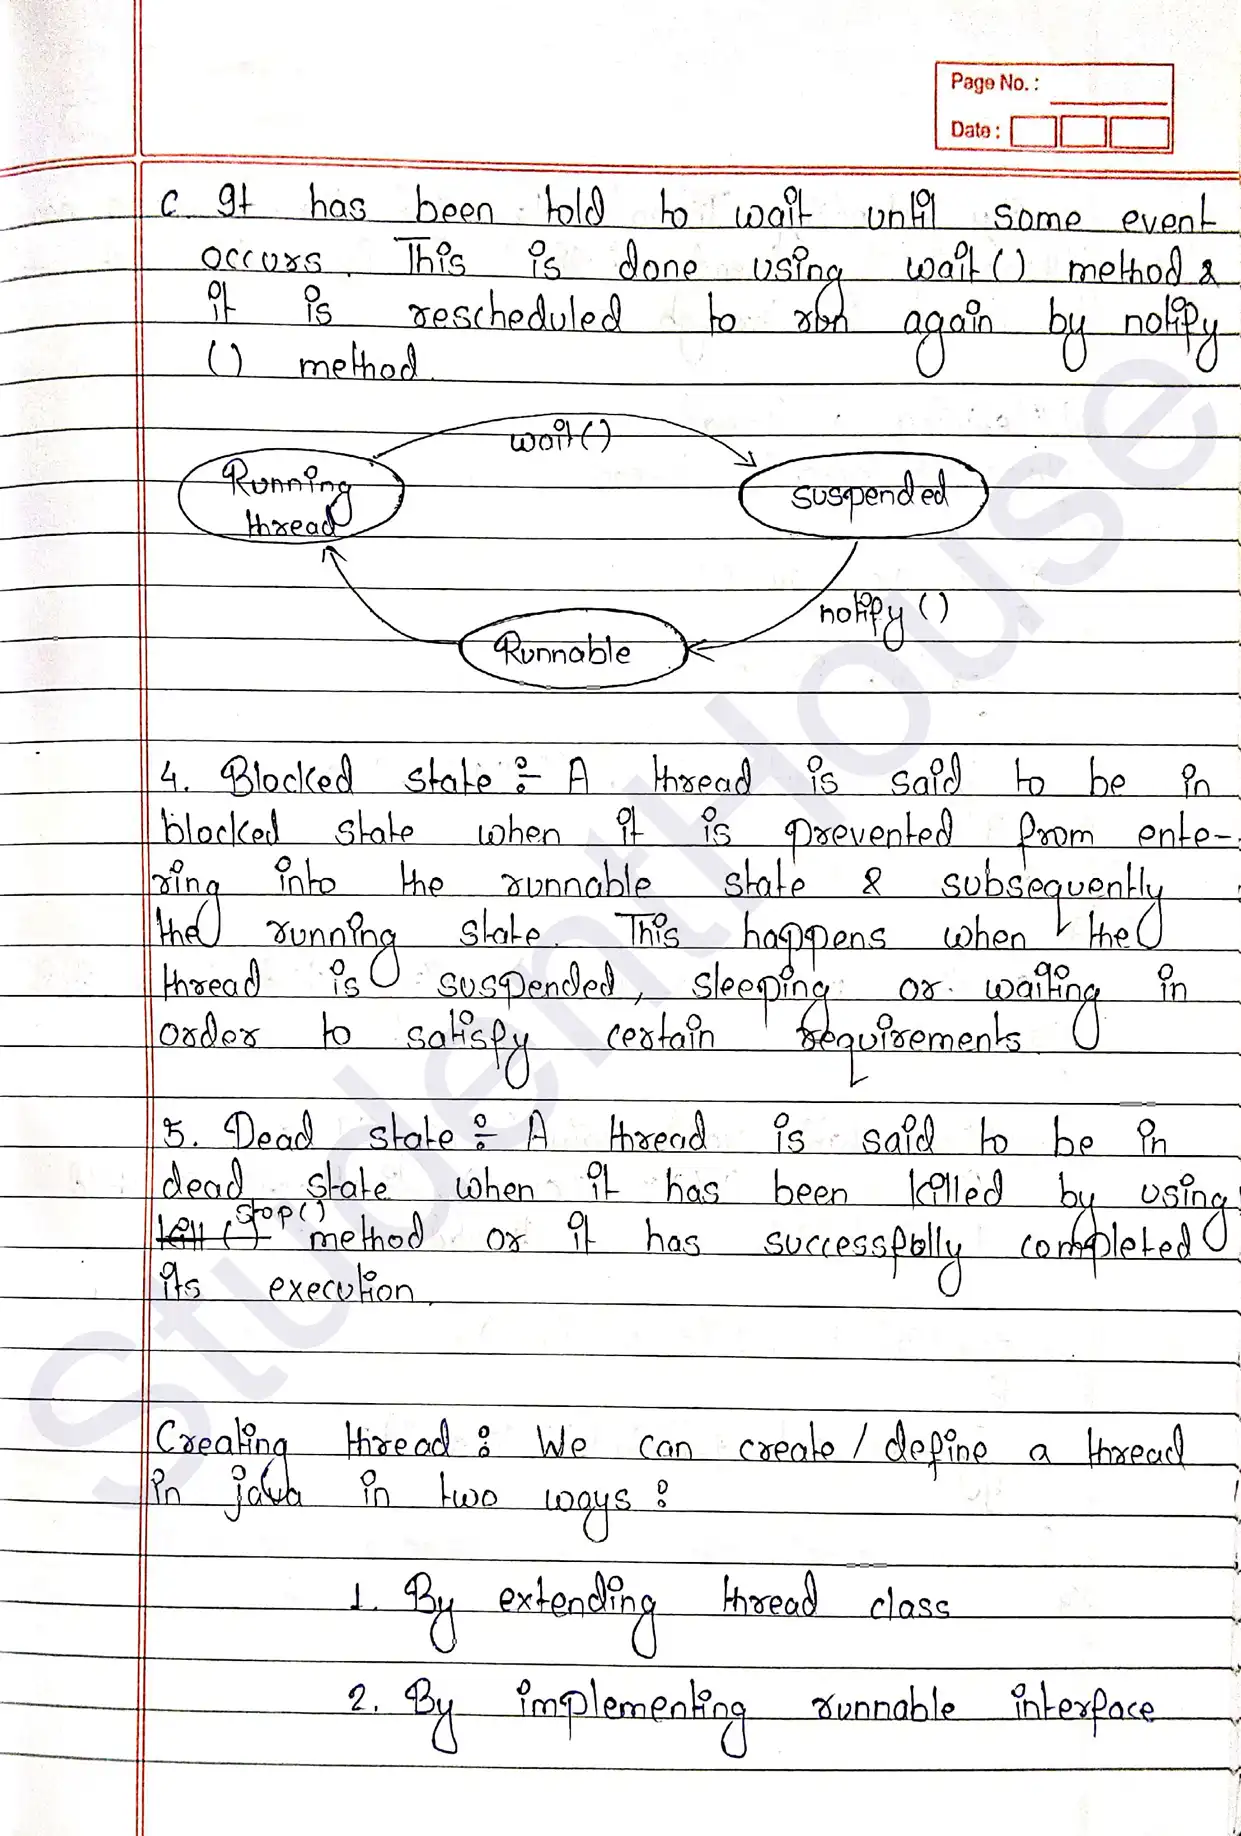 Page No. :
Date :
c. It has been told to wait until some event
occurs. This is done using wait() method &
it is rescheduled to run again by notify
() method.
wait()
Running
thread
suspended
notify()
Runnable
4. Blocked state :- A thread is said to be in
blocked state when it is prevented from ente-
ring into the runnable state & subsequently
the running state. This happens when the
thread is suspended, sleeping or waiting in
order to satisfy certain requirements.
5. Dead state :- A thread is said to be in
dead state when it has been killed by using
stop()
kill () method or it has successfully completed
its execution.
Creating thread : We can create / define a thread
in java in two ways :
1. By extending thread class
2. By implementing runnable interface
StudentHouse